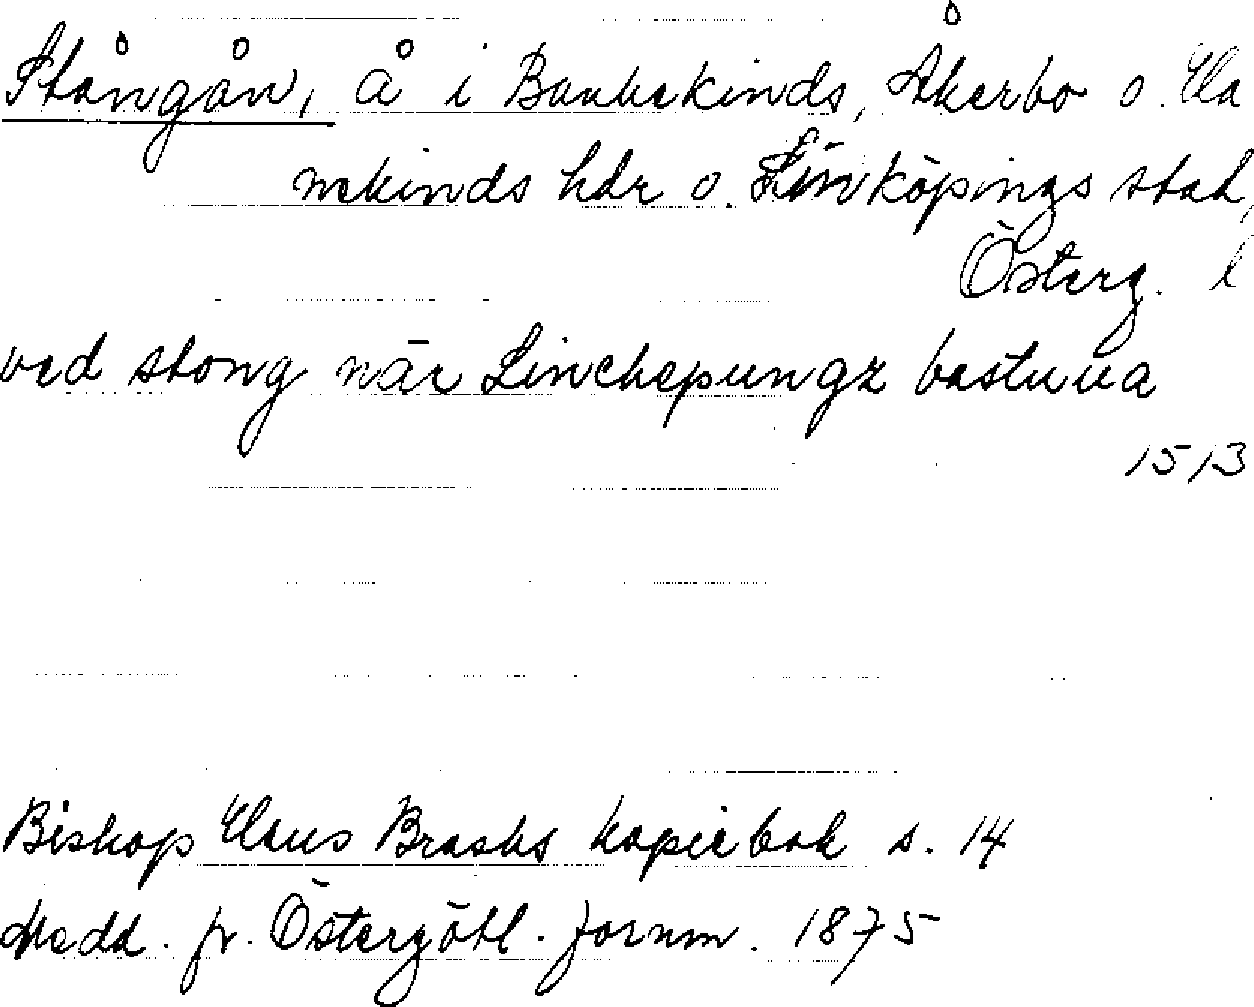 Stångån, å i Bankekinds, Åkerbo o. Ha
nekinds hdr o. Linköpings stad,
Österg. l
ved stong när Linchepungz bastuua
1513
Biskop Hans Brasks kopiebok s. 14
Medd. fr. Östergötl. fornm. 1875